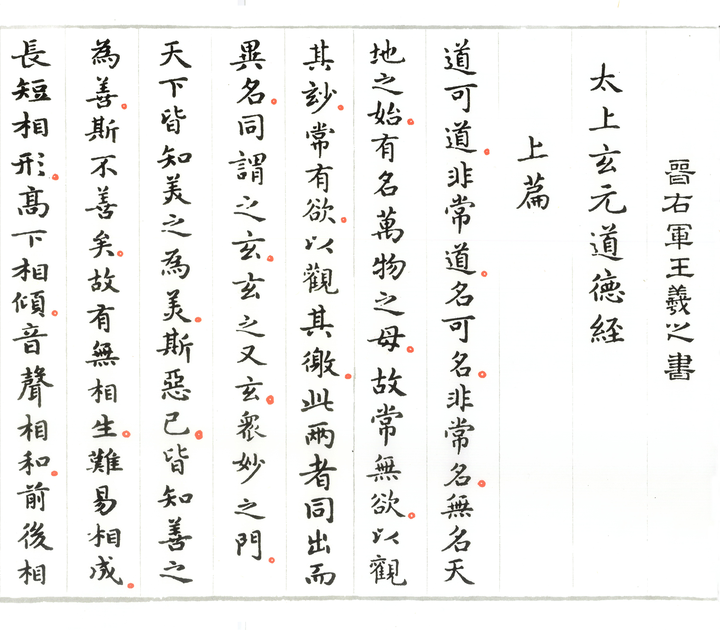 晉右軍王羲之書
太上玄元道德経
上篇
道可道。非常道。名可名。非常名。無名天
地之始。有名萬物之母。故常無欲。以觀
其玅。常有欲。以觀其徼。此兩者同出而
異名。同謂之玄。玄之又玄。衆妙之門。
天下皆知美之為美。斯惡已。皆知善之
為善。斯不善矣。故有無相生。難易相成。
長短相形。高下相傾。音聲相和。前後相